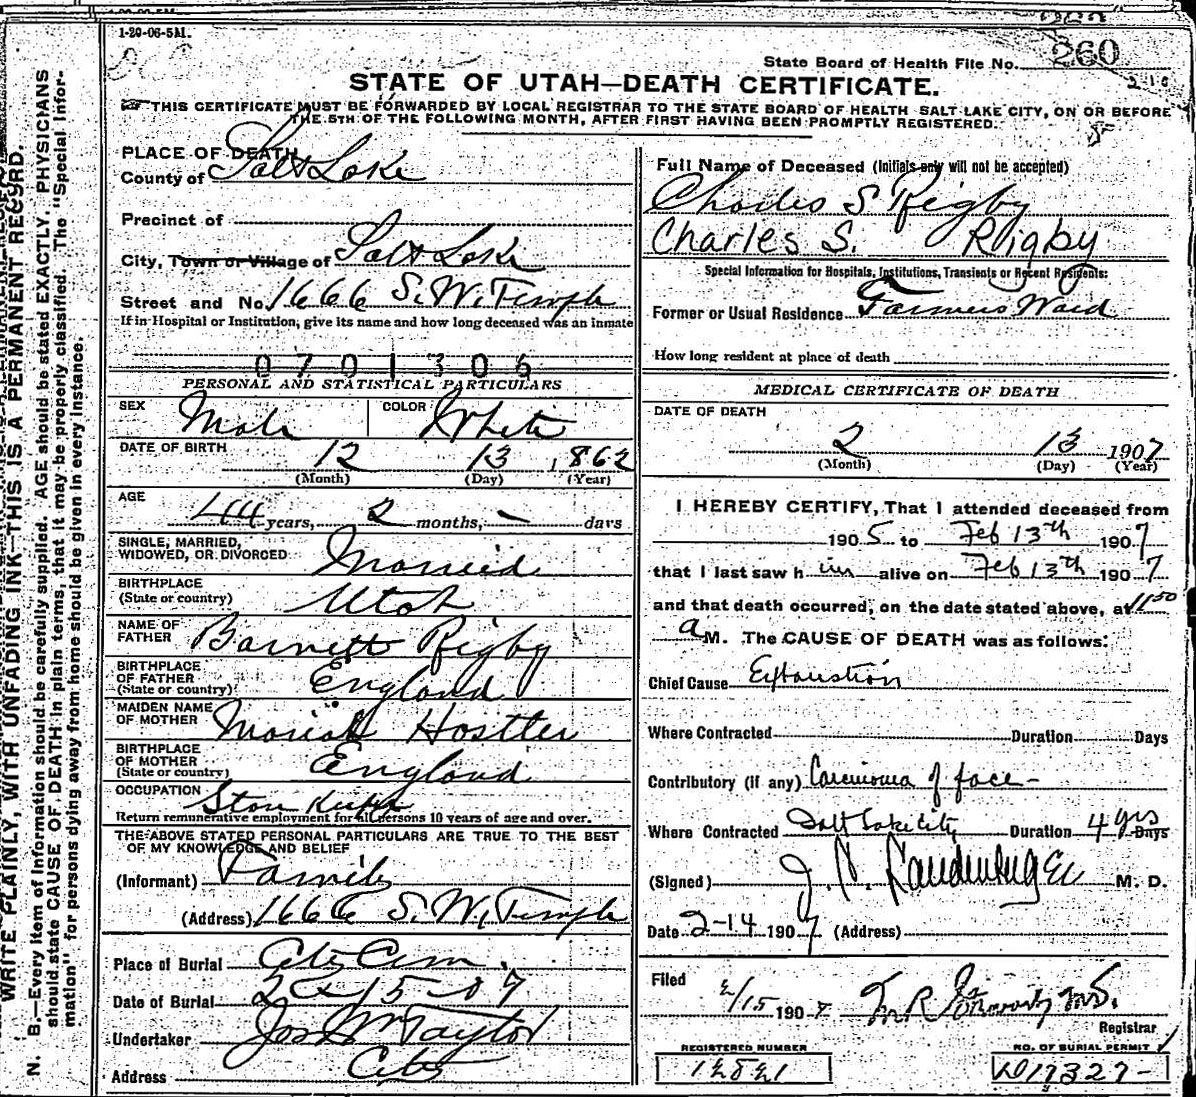 1-20-06-5M.
260
State Board of Health File No.
STATE OF UTAH—DEATH CERTIFICATE.
THIS CERTIFICATE MUST BE FORWARDED BY LOCAL REGISTRAR TO THE STATE BOARD OF HEALTH SALT LAKE CITY, ON OR BEFORE
THE 5TH OF THE FOLLOWING MONTH, AFTER FIRST HAVING BEEN PROMPTLY REGISTERED.
WRITE PLAINLY, WITH UNFADING INK—THIS IS A PERMANENT RECORD.
N. B.—Every item of information should be carefully supplied. AGE should be stated EXACTLY. PHYSICIANS
should state CAUSE OF DEATH in plain terms, that it may be properly classified. The "Special Infor-
mation" for persons dying away from home should be given in every instance.
PLACE OF DEATH
County of Salt Lake
Precinct of
City, Town or Village of Salt Lake
Street and No. 1666 S. W. Temple
If in Hospital or Institution, give its name and how long deceased was an inmate
0701306
PERSONAL AND STATISTICAL PARTICULARS
SEX Male COLOR White
DATE OF BIRTH 12 13 1862
(Month) (Day) (Year)
AGE 44 years, 2 months, - days
SINGLE, MARRIED,
WIDOWED, OR DIVORCED Married
BIRTHPLACE
(State or country) Utah
NAME OF
FATHER Barnett Rigby
BIRTHPLACE
OF FATHER
(State or country) England
MAIDEN NAME
OF MOTHER Moriah Hostler
BIRTHPLACE
OF MOTHER
(State or country) England
OCCUPATION Store Keeper
Return remunerative employment for all persons 10 years of age and over.
THE ABOVE STATED PERSONAL PARTICULARS ARE TRUE TO THE BEST
OF MY KNOWLEDGE AND BELIEF
(Informant) Family
(Address) 1666 S. W. Temple
Place of Burial City Cem.
Date of Burial 2-15-07
Undertaker Jos Wm Taylor
Address City
Full Name of Deceased (Initials only will not be accepted)
Charles S Rigby
Charles S. Rigby
Special Information for Hospitals, Institutions, Transients or Recent Residents:
Former or Usual Residence Farmers Ward
How long resident at place of death
MEDICAL CERTIFICATE OF DEATH
DATE OF DEATH
2 13 1907
(Month) (Day) (Year)
I HEREBY CERTIFY, That I attended deceased from
1905 to Feb 13th 1907
that I last saw him alive on Feb 13th 1907
and that death occurred, on the date stated above, at 11:50
a M. The CAUSE OF DEATH was as follows:
Chief Cause Exhaustion
Where Contracted Duration Days
Contributory (if any) Carcinoma of face
Where Contracted Salt Lake City Duration 4 yrs Days
(Signed) M. D.
Date 2-14 1907 (Address)
Filed 2/15 1907
Registrar
REGISTERED NUMBER
NO. OF BURIAL PERMIT